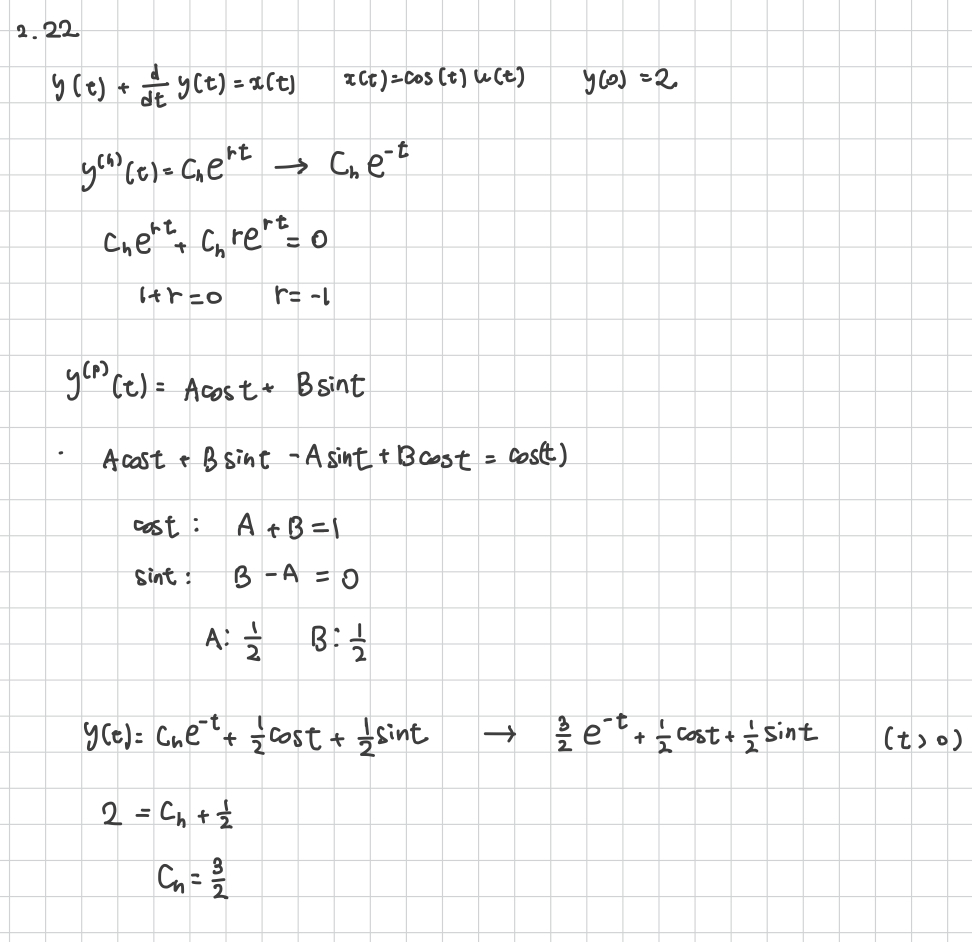 2.22
y(t) + d/dt y(t) = x(t) x(t)=cos(t)u(t) y(0)=2
y^(h)(t) = C_h e^{rt} → C_h e^{-t}
C_h e^{rt} + C_h r e^{rt} = 0
1+r=0 r=-1
y^(p)(t) = A cos t + B sin t
· A cost + B sint - A sint + B cost = cos(t)
cost : A + B = 1
sint : B - A = 0
A: 1/2 B: 1/2
y(t) = C_h e^{-t} + 1/2 cost + 1/2 sint → 3/2 e^{-t} + 1/2 cost + 1/2 sint (t>0)
2 = C_h + 1/2
C_h = 3/2